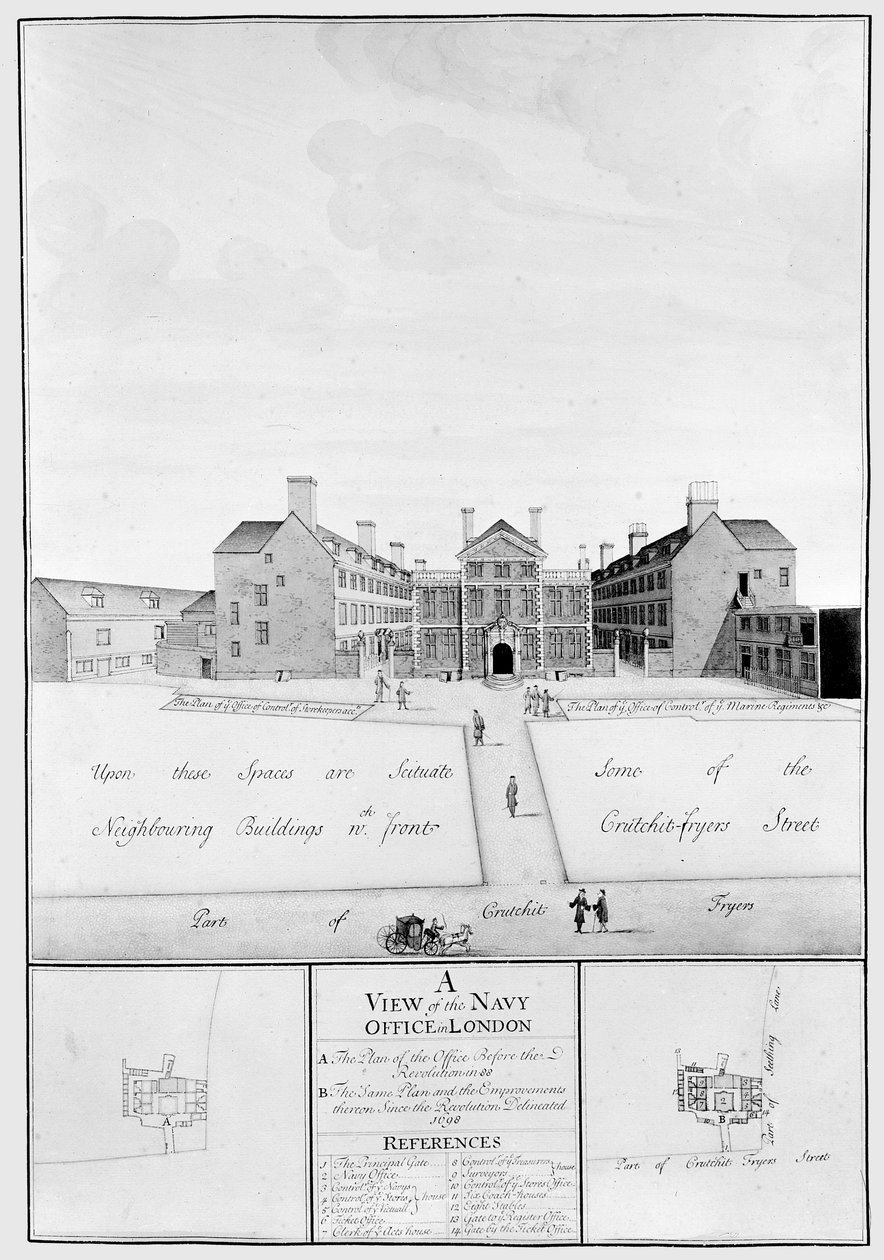 The Plan of yͤ Office of Controlͬ of Storekeepers accͭˢ
The Plan of yͤ Office of Controlͬ of yͤ Marine Regiments &c
Upon these Spaces are Scituate Some of the
Neighbouring Buildings wͨʰ front Crutchit-fryers Street
Part of Crutchit Fryers
A
VIEW of the NAVY
OFFICE in LONDON
A The Plan of the Office Before the
Revolution in 88
B The Same Plan and the Emprovements
thereon Since the Revolution Delineated
1698
REFERENCES
1 The Principal Gate
2 Navy Office
3 Controlͬ of yͤ Navys
4 Controlͬ of yͤ Stores
5 Controlͬ of yͤ Victuallͬ
house
6 Ticket Office
7 Clerk of yͤ Acts house
8 Controlͬ of yͤ Treasurers
9 Surveyors
house
10 Controlͬ of yͤ Stores Office
11 Six Coach-houses
12 Eight Stables
13 Gate to yͤ Register Office
14 Gate by the Ticket Office
A
Part of Seething Lane
B
Part of Crutchit Fryers Street